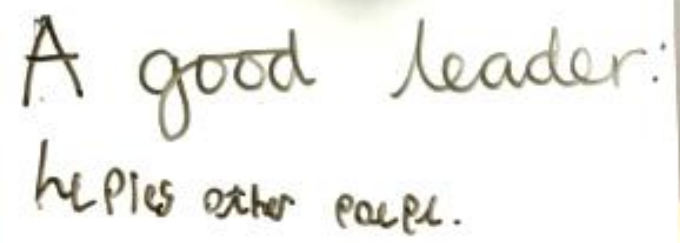 A good leader:
helpies other paepl.